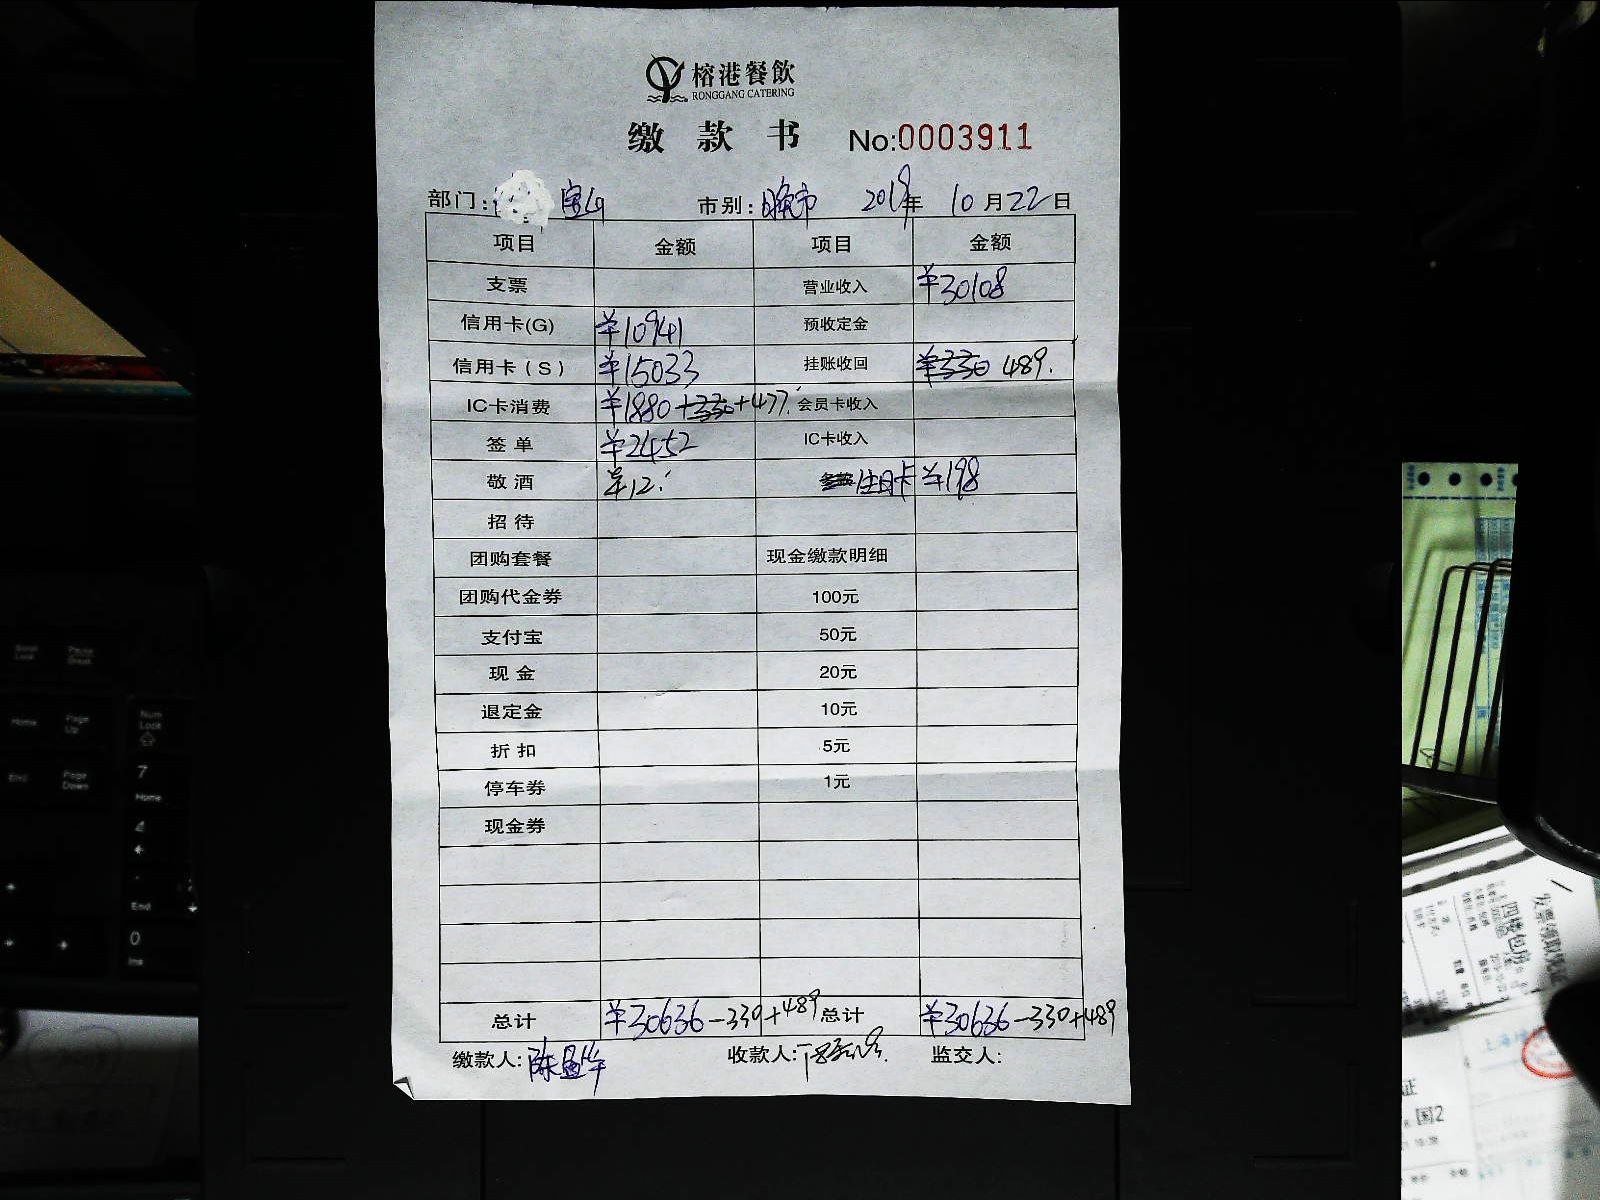 榕港餐飲
RONGGANG CATERING
缴 款 书 No:0003911
部门: 宝山 市别: 晚市 2019年 10月22日
项目 金额 项目 金额
支票 营业收入 ¥30108
信用卡(G) ¥10941 预收定金
信用卡(S) ¥15033 挂账收回 ¥330 489.
IC卡消费 ¥1880+330+477. 会员卡收入
签单 ¥2452 IC卡收入
敬酒 ¥12. 生日卡 ¥198
招待
团购套餐 现金缴款明细
团购代金券 100元
支付宝 50元
现金 20元
退定金 10元
折扣 5元
停车券 1元
现金券
总计 ¥30636-330+489 总计 ¥30636-330+489
缴款人: 陈盈华 收款人: 监交人:
Scroll Lock
Pause Break
Home
Page Up
Num Lock
End
Page Down
7
Home
4
End
0
Ins
四楼包房
国2